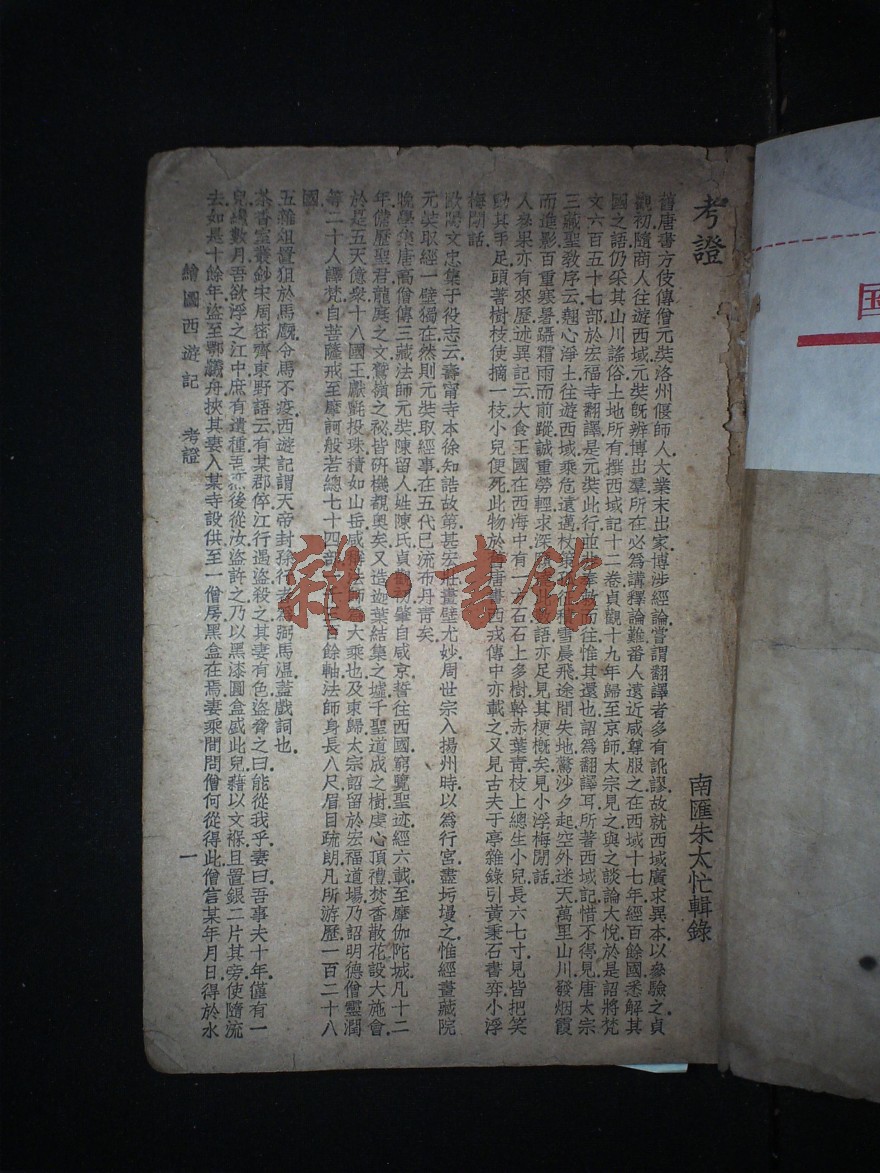 考證
南匯朱太忙輯錄
舊唐書方伎傳僧元奘洛州偃師人大業末出家博涉經論嘗謂翻譯者多有訛謬故就西域廣求異本以參驗之貞
觀初隨商人往遊西域元奘旣辨博出羣所在必為講釋論難番人遠近咸尊服之在西域十七年經百餘國悉解其
國之語仍采其山川謠俗土地所有撰西域記十二卷貞觀十九年歸至京師太宗見之與之談論大悅於是詔將梵
文六百五十七部於宏福寺翻譯是元奘此行並非奉敕而往惟其還也詔為翻譯耳所著西域記惜不得見唐太宗
三藏聖敎序云翹心淨土往遊西域乘危遠邁杖策孤征積雪晨飛途間失地驚沙夕起空外迷天萬里山川發烟霞
而進影百重寒暑躡霜雨而前蹤誠重勞輕求深願達數語亦足見其梗槪矣見小浮梅閒話
人參果亦有來歷述異記云大食王國在西海中有一方石石上多樹幹赤葉靑枝上總生小兒長六七寸見皆把笑
動其手足頭著樹枝使摘一枝小兒便死此物於唐書西戎傳中亦載之又見古夫于亭雜錄引黃秉石書弈小浮
梅閒話
歐陽文忠集于役志云壽甯寺本徐知誥故第甚宏壯畫壁尤妙周世宗入揚州時以為行宮盡圬墁之惟經畫藏院
元奘取經一壁獨在然則元奘取經事在五代已流布丹靑矣
晚學集唐高僧傳三藏法師元奘陳留人姓陳氏貞觀肇自咸京誓往西國窮覽聖迹經六載至摩伽陀城凡十二
年備歷聖君龍庭之文鷲嶺之祕皆硏機覩奧矣又造迦葉結集之墟千聖道成之樹虔心頂禮焚香散花設大施會
於是五天億衆十八國王獻氈投珠積如山岳咸法師大乘也及東歸太宗詔留於宏福道場乃詔明德僧靈潤
等二十人譯梵自菩薩戒至摩訶般若總七十四部百餘軸法師身長八尺眉目疏朗凡所游歷一百二十八
國
五雜俎置狙於馬廄令馬不疫西遊記謂天帝封孫行者為弼馬溫蓋戲詞也
茶香室叢鈔宋周密齊東野語云有某郡倅江行遇盜殺之其妻有色盜脅之曰能從我乎妻曰吾事夫十年僅有一
兒纔數月吾欲浮之江中庶有遺種吾然後從汝盜許之乃以黑漆圓盒盛此兒藉以文褓且置銀二片其旁使隨流
去如是十餘年盜至鄂艤舟挾其妻入某寺設供至一僧房黑盒在焉妻乘間問僧何從得此僧言某年月日得於水
繪圖西遊記　考證
一
雜·書館